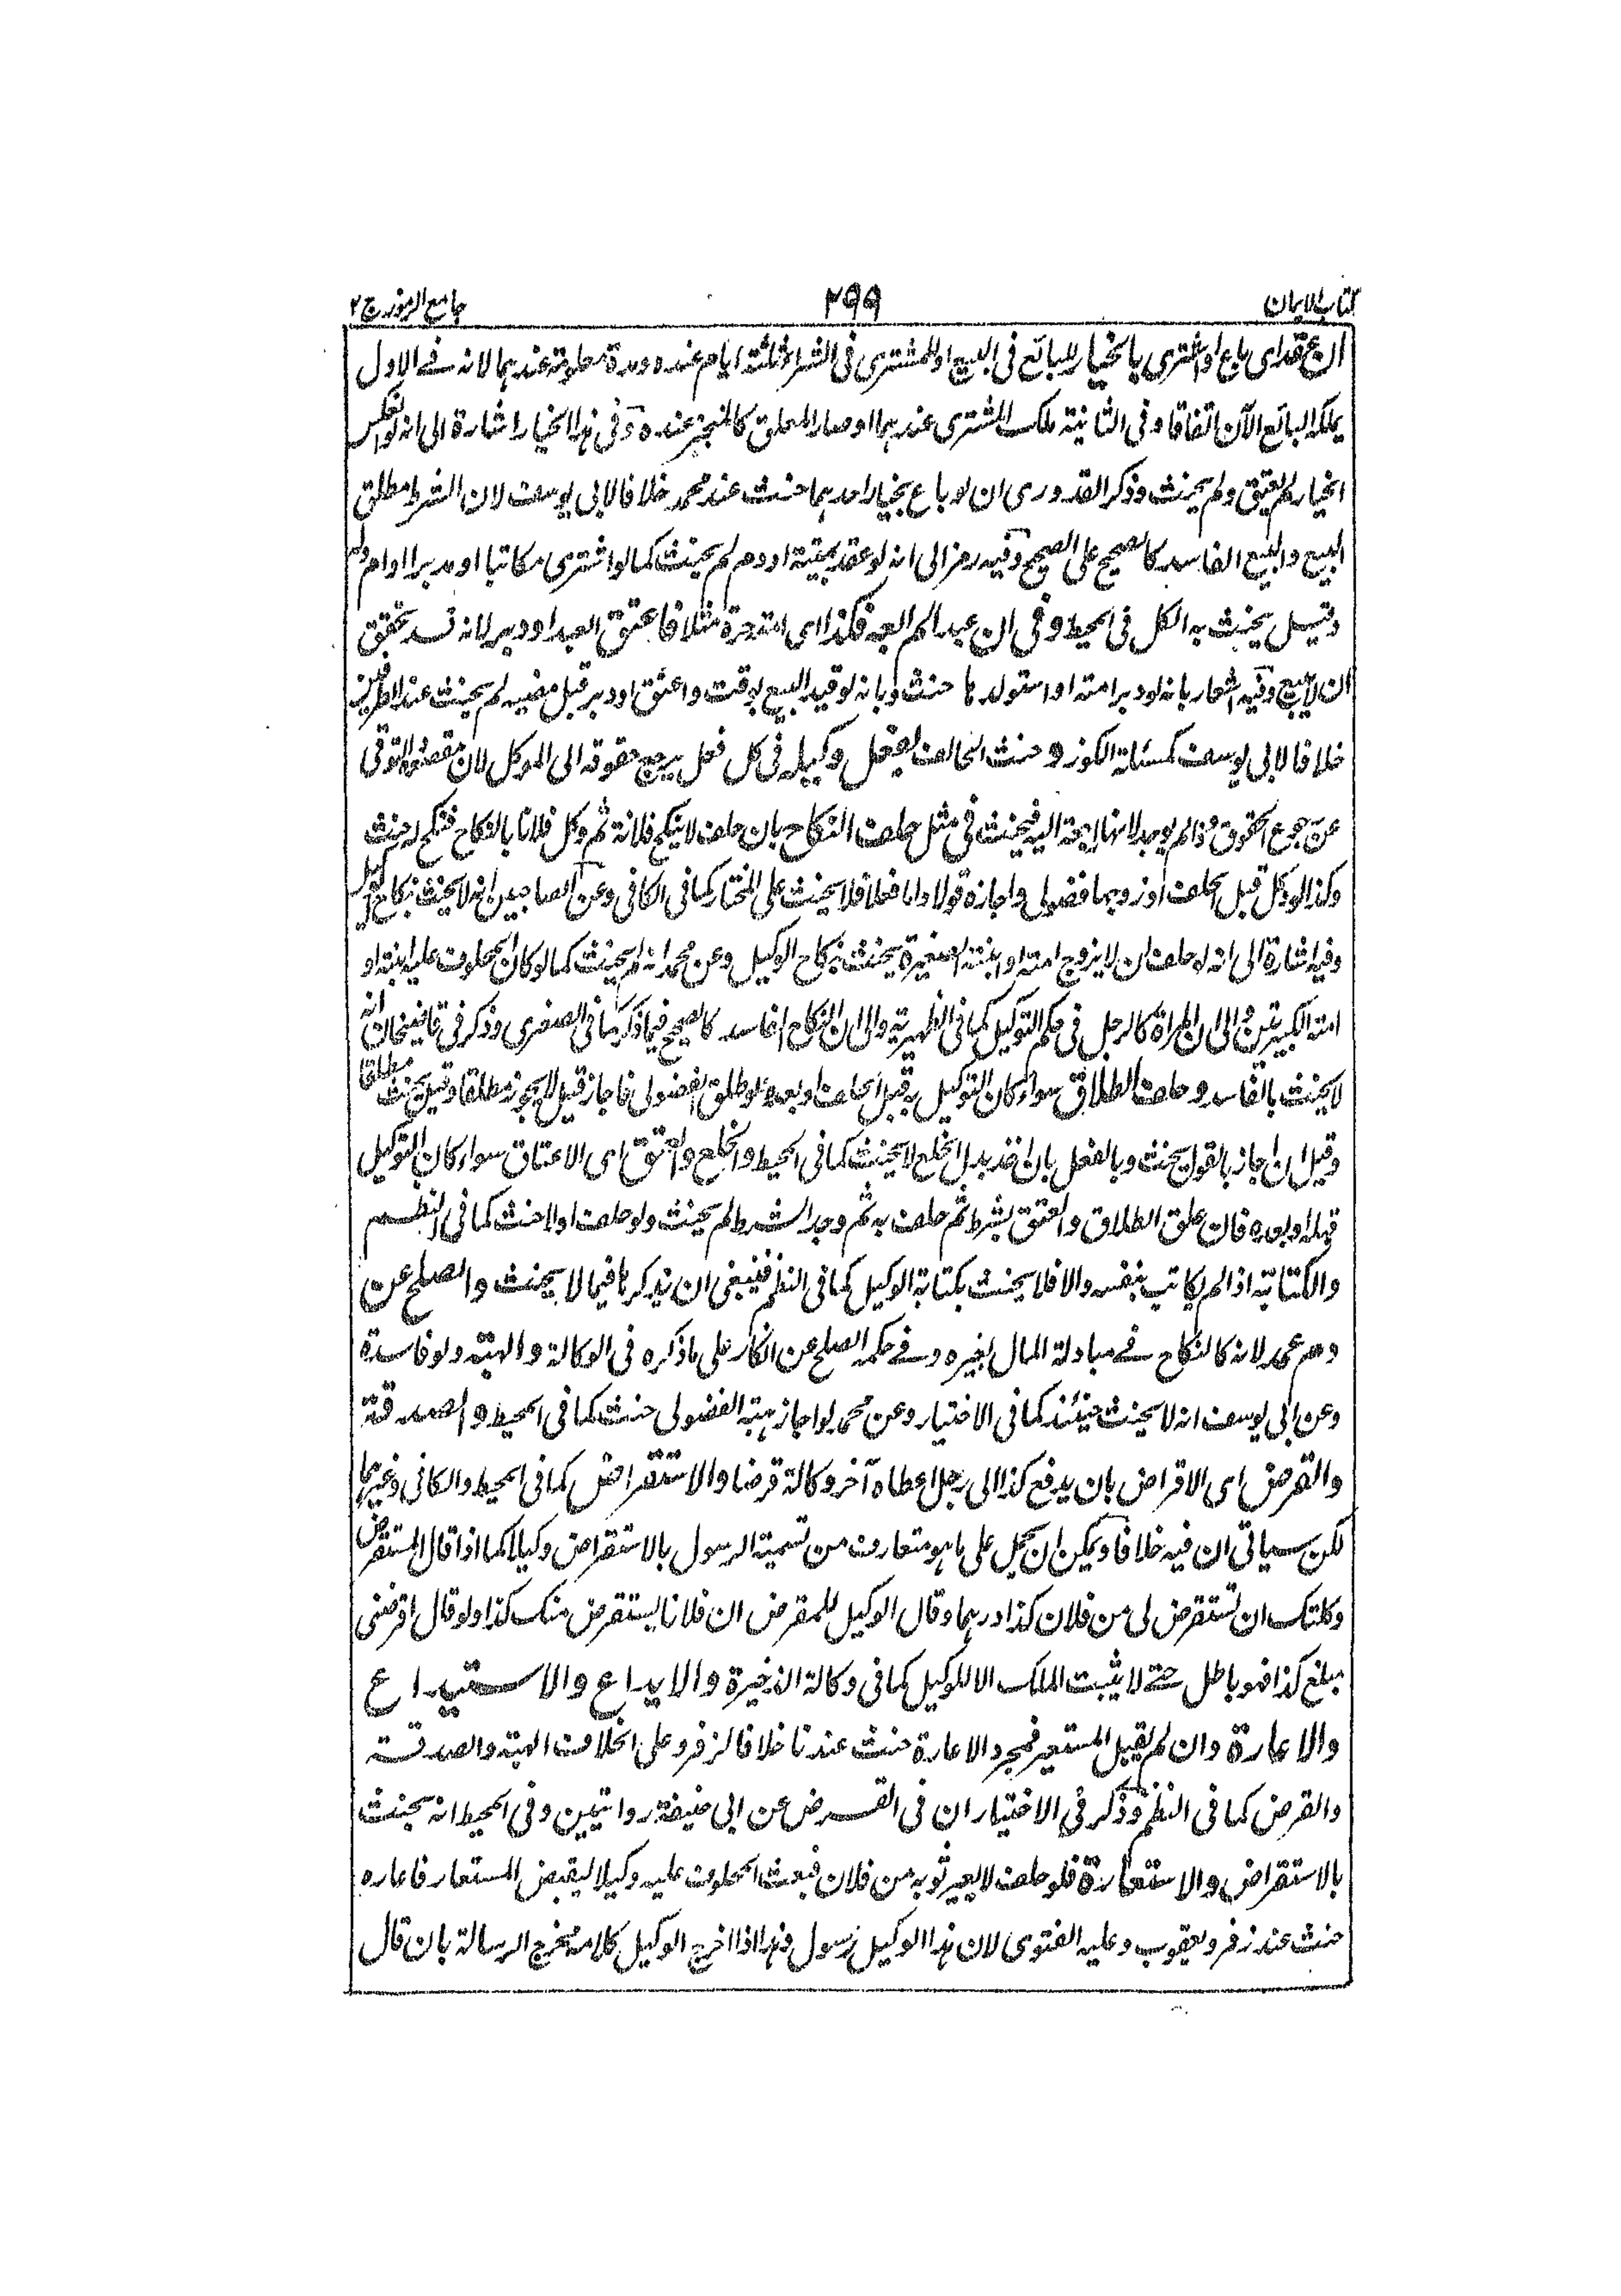 كتاب الايمان
٢٩٩
جامع الرموز ج ٢
ان عقد اى باع او اشترى بالخيار للبائع فى البيع او للمشترى فى الشراء ثلثة ايام عنده ومدة معلومة عندهما لانه فى الاول
يملكه البائع الآن اتفاقا وفى الثانية ملك المشترى عندهما او صار المعلق كالمنجز عنده وفى هذا الخيار اشارة الى انه لو انعكس
الخيار لم يعتق ولم يحنث وذكر القدورى ان لو باع بخيار احدهما حنث عند محمد خلافا لابى يوسف لان الشرط مطلق
البيع والبيع الفاسد كالصحيح على الصحيح وفيه رمز الى انه لو عقد بميتة او دم لم يحنث كما لو اشترى مكاتبا او مدبرا او ام ولد
وقيل يحنث به الكل فى المحيط وفى ان عبد الم ابعه فكذا اى امته حرة مثلا فاعتق العبد او دبر لانه قد تحقق
ان لا يبيع وفيه اشعار بانه لو دبر امته او استولدها حنث وبانه لو قيد البيع بوقت واعتق او دبر قبل مضيه لم يحنث عند الطرفين
خلافا لابى يوسف كمسئلة الكوز و حنث الحالف بفعل وكيله فى كل فعل يرجع حقوقه الى الموكل لان مقصوده التوقى
عن رجوع الحقوق وذا لم يوجد لانها راجعة اليه فيحنث فى مثل حلف النكاح بان حلف لا ينكح فلانة ثم وكل فلانا بالنكاح فنكح له حنث
وكذا لو وكل قبل الحلف او زوجها فضولى واجازه قولا واما فعلا فلا يحنث على المختار كما فى الكافى وعن الصاحبين انه لا يحنث بنكاح الوكيل
وفيه اشارة الى انه لو حلف ان لا يزوج امته او ابنته الصغيرة يحنث بنكاح الوكيل وعن محمد انه لم يحنث كما لو كان المحلوف عليه ابنته او
امته الكبيرتين والى ان المراة كالرجل فى حكم التوكيل كما فى الظهيرية والى ان النكاح الفاسد كالصحيح فيما ذكر كما فى الصغرى وذكر فى قاضيخان انه
لا يحنث بالفاسد و حلف الطلاق سواء كان التوكيل به قبل الحلف او بعده ولو طلق الفضولى فاجاز قيل لا يجوز مطلقا وقيل يحنث مطلقا
وقيل ان اجاز بالقول يحنث وبالفعل بان اخذ بدل الخلع لا يحنث كما فى المحيط والخلع والعتق اى الاعتاق سواء كان التوكيل
قبله او بعده فان علق الطلاق والعتق بشرط ثم حلف به ثم وجد الشرط لم يحنث ولو حلف اولا حنث كما فى النظم
والكتابة اذا لم يكاتب بنفسه والا فلا يحنث بكتابة الوكيل كما فى النظم فينبغى ان يذكرها فيما لا يحنث والصلح عن
دم عمد لانه كالنكاح فى مبادلة المال بغيره وفى حكمه الصلح عن انكار على ما ذكره فى الوكالة والهبة ولو فاسدة
وعن ابى يوسف انه لا يحنث حينئذ كما فى الاختيار وعن محمد لو اجاز هبة الفضولى حنث كما فى المحيط والصدقة
والقرض اى الاقراض بان يدفع كذا الى رجل اعطاه آخر وكالة قرضا والاستقراض كما فى المحيط والكافى وغيرهما
لكن سياتى ان فيه خلافا ويمكن ان يحمل على ما هو متعارف من تسمية الرسول بالاستقراض وكيلا كما اذا قال المستقرض
وكلتك ان تستقرض لى من فلان كذا درهما وقال الوكيل للمقرض ان فلانا يستقرض منك كذا ولو قال اقرضنى
مبلغ كذا فهو باطل حتى لا يثبت الملك الا للوكيل كما فى وكالة الذخيرة والايداع والاستيداع
والاعارة وان لم يقبل المستعير فمجرد الاعارة حنث عندنا خلافا لزفر وعلى الخلاف الهبة والصدقة
والقرض كما فى النظم وذكر فى الاختيار ان فى القرض عن ابى حنيفة روايتين وفى المحيط انه يحنث
بالاستقراض والاستعارة فلو حلف لا يعير ثوبه من فلان فبعث المحلوف عليه وكيلا ليقبض المستعار فاعاره
حنث عند زفر ويعقوب وعليه الفتوى لان هذا الوكيل رسول وهذا اذا اخرج الوكيل كلامه مخرج الرسالة بان قال